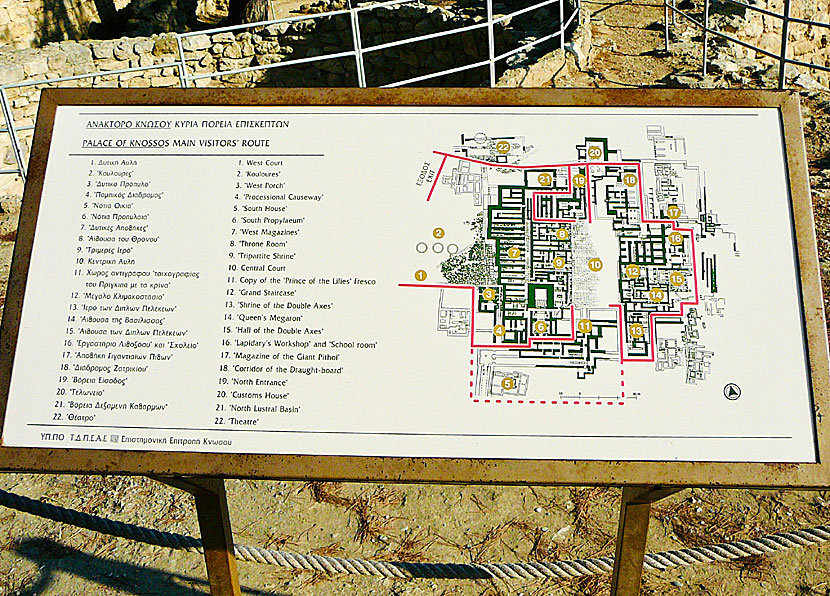 ΑΝΑΚΤΟΡΟ ΚΝΩΣΟΥ ΚΥΡΙΑ ΠΟΡΕΙΑ ΕΠΙΣΚΕΠΤΩΝ
PALACE OF KNOSSOS MAIN VISITORS' ROUTE
1. Δυτική Αυλή
2. 'Κουλούρες'
3. 'Δυτικό Πρόπυλο'
4. 'Πομπικός Διάδρομος'
5. 'Νότια Οικία'
6. 'Νότια Προπύλαια'
7. 'Δυτικές Αποθήκες'
8. 'Αίθουσα του Θρόνου'
9. 'Τριμερές Ιερό'
10. Κεντρική Αυλή
11. Χώρος αντιγράφου 'τοιχογραφίας
του Πρίγκιπα με τα κρίνα'
12. 'Μεγάλο Κλιμακοστάσιο'
13. 'Ιερό των Διπλών Πελέκεων'
14. 'Αίθουσα της Βασίλισσας'
15. 'Αίθουσα των Διπλών Πελέκεων'
16. 'Εργαστήριο Λιθοξόου' και 'Σχολείο'
17. 'Αποθήκη Γιγαντιαίων Πίθων'
18. 'Διάδρομος Ζατρικίου'
19. 'Βόρεια Είσοδος'
20. 'Τελωνείο'
21. 'Βόρεια Δεξαμενή Καθαρμών'
22. 'Θέατρο'
1. West Court
2. 'Kouloures'
3. 'West Porch'
4. 'Processional Causeway'
5. 'South House'
6. 'South Propylaeum'
7. 'West Magazines'
8. 'Throne Room'
9. 'Tripartite Shrine'
10. Central Court
11. Copy of the 'Prince of the Lilies' fresco
12. 'Grand Staircase'
13. 'Shrine of the Double Axes'
14. 'Queen's Megaron'
15. 'Hall of the Double Axes'
16. 'Lapidary's Workshop' and 'School room'
17. 'Magazine of the Giant Pithoi'
18. 'Corridor of the Draught-board'
19. 'North Entrance'
20. 'Customs House'
21. 'North Lustral Basin'
22. 'Theatre'
ΕΞΟΔΟΣ
EXIT
22
20
21
19
18
17
2
8
16
7
9
10
12
15
1
3
14
4
6
11
13
5
ΥΠ.ΠΟ Τ.Δ.Π.Ε.Α.Ε Επιστημονική Επιτροπή Κνωσού